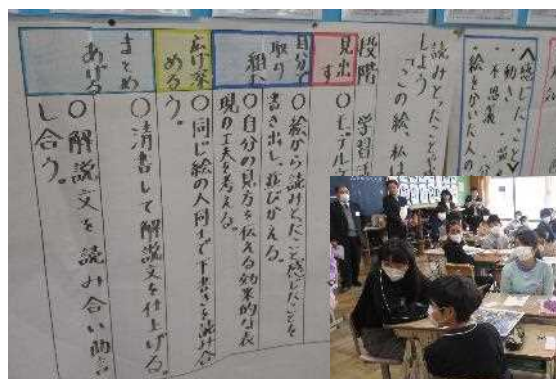 〈感じたこと〉
・動き
・不思議
・絵をかいた人の
読みとったことや
しよう
「この絵、私は
段階 学習
見出す
○モデル
自分で
取り
組む
○絵から読みとったこと感じたことを
書き出し、並びかえる。
○自分の見方を伝える効果的な表
現の工夫を考える。
広げ深
める
○同じ絵の人同士で下書きを読み合
う。
まとめ
あげる
○清書して解説文を仕上げる。
○解説文を読み合い助言
し合う。